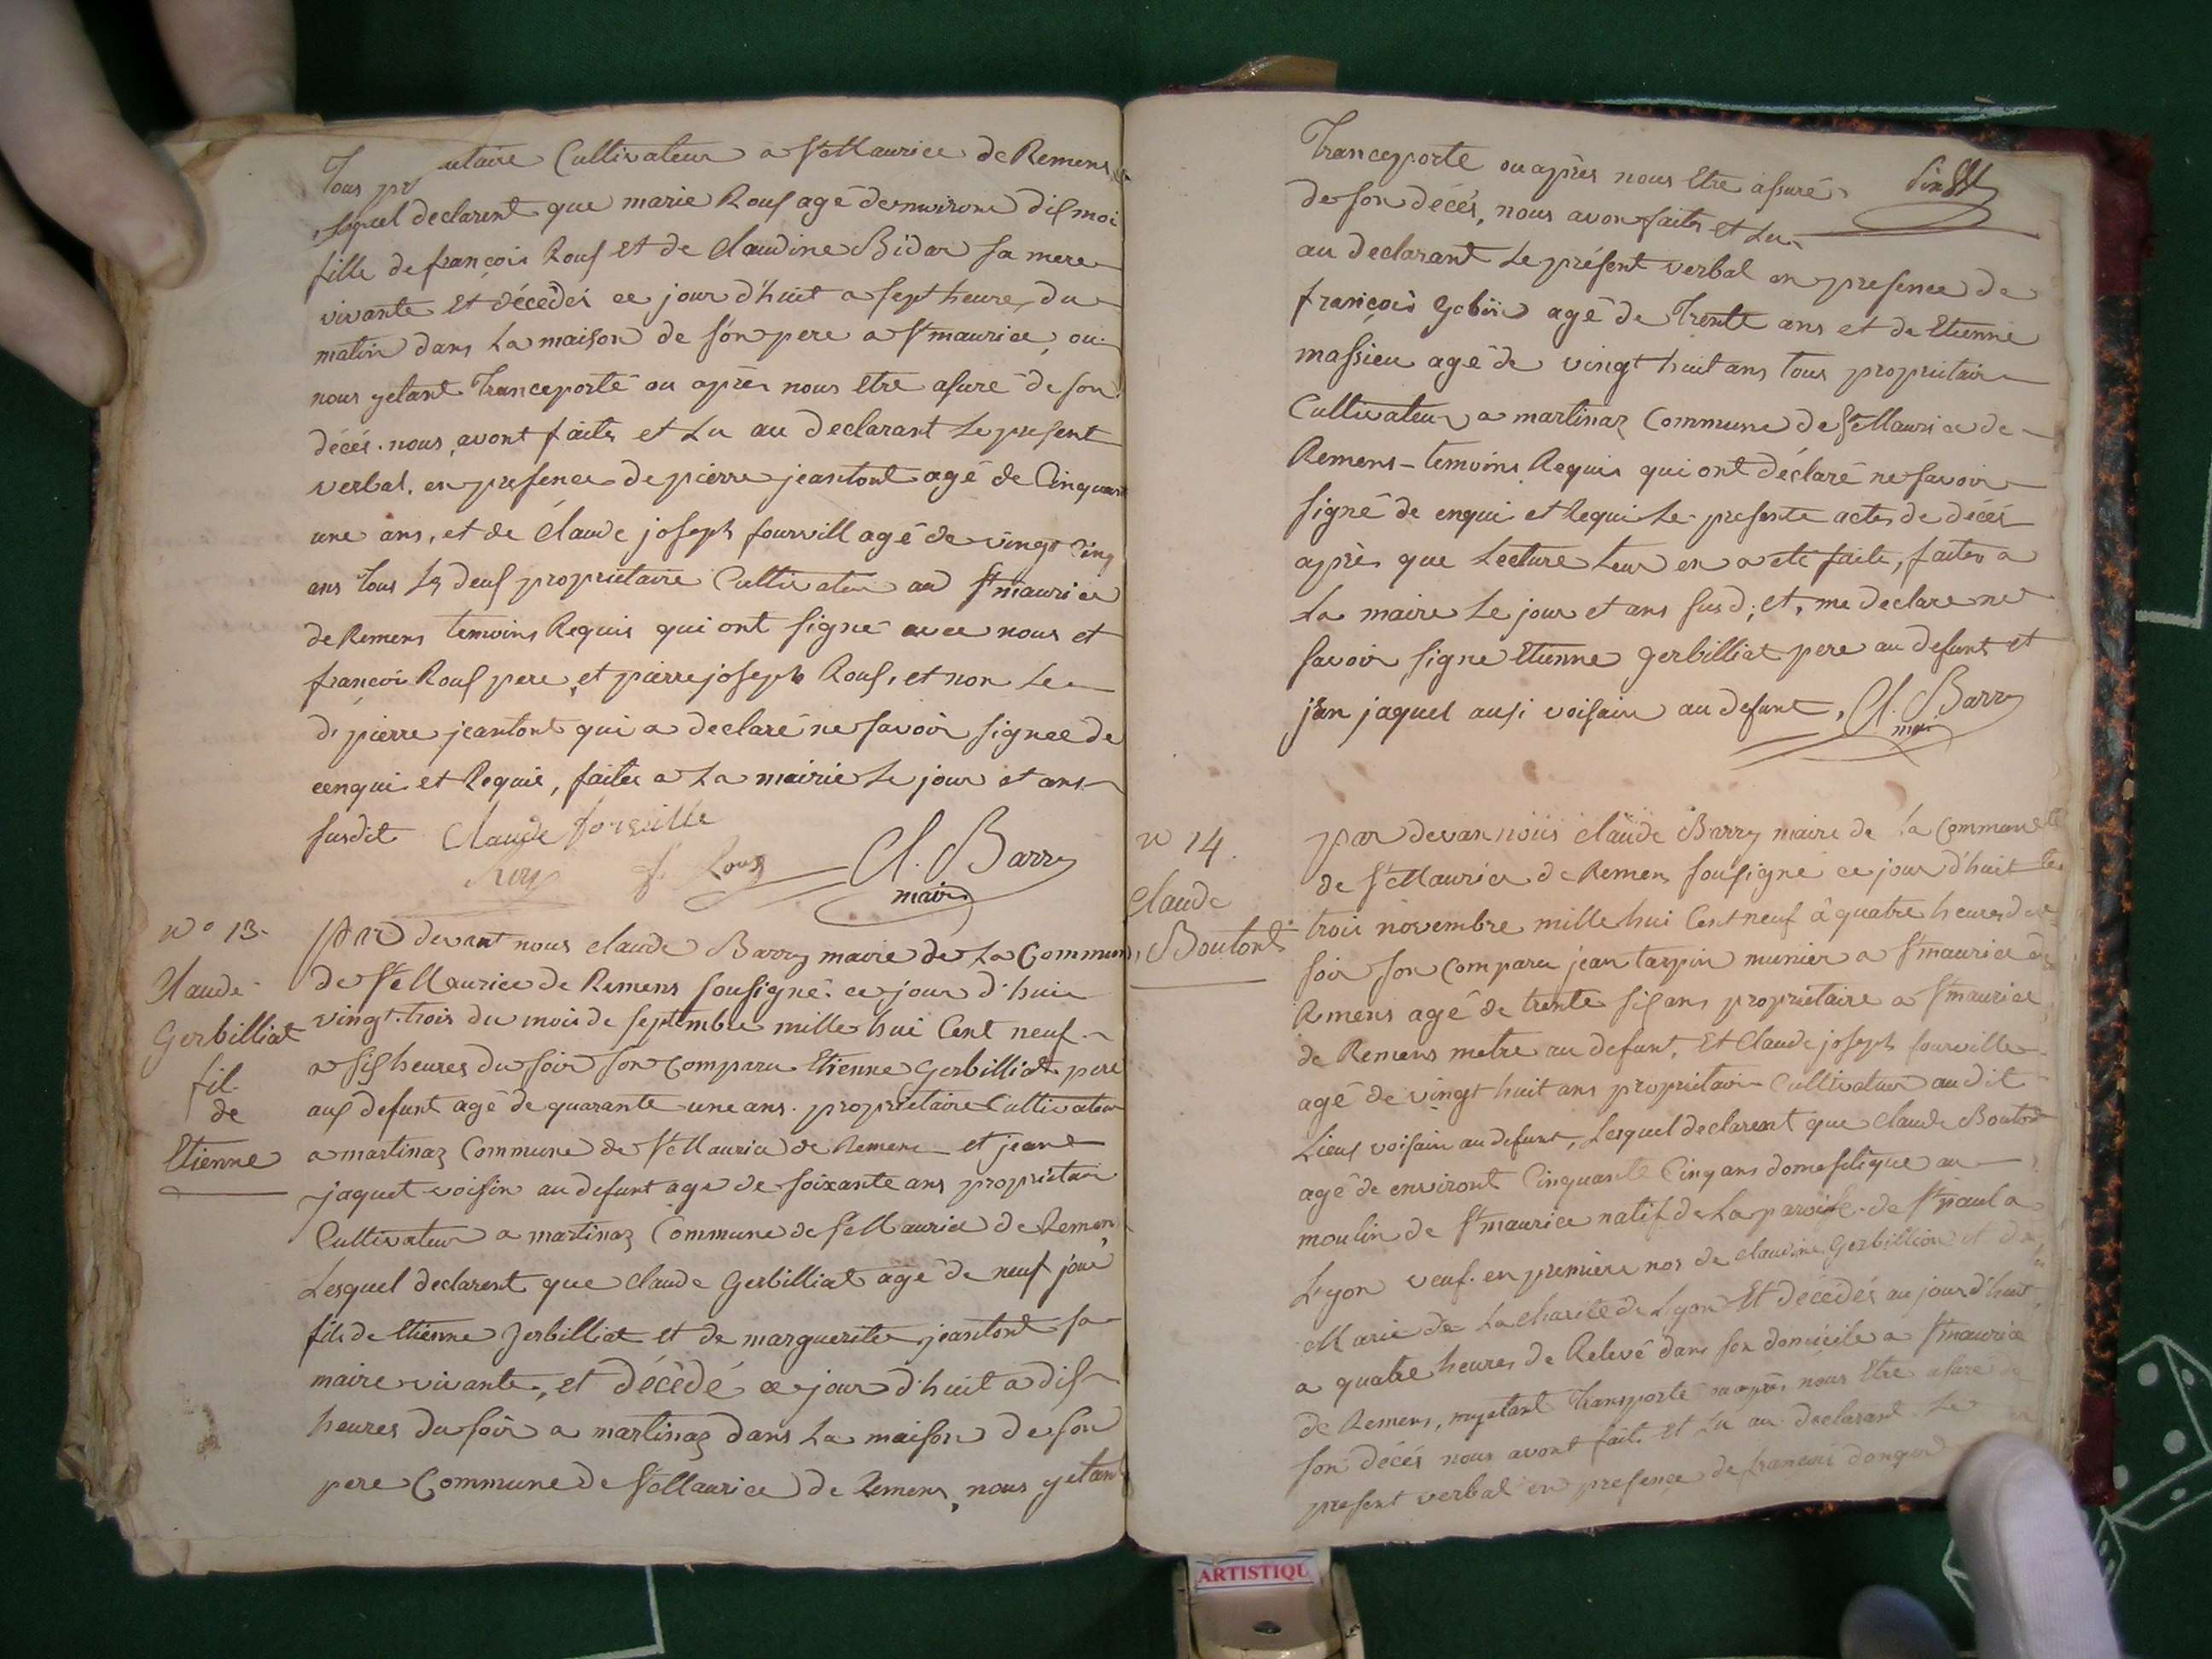 Tous pr utaire Cultivateur a St Maurice de Remens
lesquel declarent que marie Rous agé denvirone dis moi
fille de françois Rous et de Claudine Bidar sa mere
vivante et décédéi ce jour d'huit a sept heure du
matin dans la maison de son pere a St maurice, ou
nous yetant Tranceporté ou aprèr nous etre asuré de son
décés. nous, avont faite et lu au declarant le present
verbal, en presence de pierre jeantont agé de Cinquant
une ans, et de Claude joseph fourvill agé de vingt Cinq
ans tous les deus propriétaire Cultivateur au St maurice
de Remens temoins Requis qui ont signé avec nous et
françoi Rous pere, et pierre joseph Rous, et non le
dt pierre jeantont qui a declaré ne savoir signeé de
cenqui et Requis, faites a La mairie le jour et ans
susdit Claude forville
f. Rous Cl. Barry
maire
N° 13.
Claude
Gerbilliat
fil
de
Etienne
Par devant nous claude Barry maire de La Commune
de St Maurice de Remens sousigné. ce jour d'huit
vingt-trois du mois de septembre mille hui Cent neuf
a sis heures du soir son comparu Etienne Gerbilliat pere
aus defunt agé de quarante une ans. propriétaire Cultivateur
a martinaz Commune de St Maurice de Remens et jeant
jaquet voisin au defunt age de soixante ans proprietaire
Cultivateur a martinaz Commune de St Maurice de Remens
Lesquel declarent que Claude Gerbilliat agé de neuf jour
fils de Etienne Jerbilliat et de marguerite jeantont sa
maire vivante, et décédé ce jour d'huit a dis
heures du soir a martinaz dans la maison de son
pere Commune de St Maurice de Remens, nous yetant
Tranceporte ou aprèr nous Etre asuré
de son décés, nous avon faites et Lu
au declarant Le présent verbal en presence de
françois Gobin agé de Trente ans et de Etienne
massieu agé de vingt huit ans tous proprietair
Cultivateur a martinaz Commune de St Maurice de
Remens temoins Requis qui ont déclaré ne savoir
signé de enqui et Requi Le presente acte de décés
après que Lecture Leur en a eté faite, faites a
la maire Le jour et ans susd; et, me declare ne
savoir signe Etienne gerbilliat pere au defunt et
jan jaquet ausi voisain au defunt, Cl. Barry
mair
N 14.
Claude
Boutont
par devan nous claude Barry maire de la Commune
de St Maurice de Remens sousigne ce jour d'huit le
trois novembre mille hui Cent neuf à quatre heures de
soir son comparu jean tarpin munier a St maurice de
Remens agé de trente sis ans proprietaire a St maurice
de Remens metre au defunt, Et Claude joseph fourville
agé de vingt huit ans propriétair Cultivateur au dit
Lieus voisain au defunt, Lesquel declarent que Claude Boutont
agé de environt Cinquante Cinq ans domestique au
moulin de St maurice natif de La paroise de St paul a
Lyon veuf en premiere nos de claudine Gerbillion et de
Marie de La Charité de Lyon Et décédés au jour d'huit
a quatre heures de Relevé dans son domicile a St maurice
de Remens, nous yetant Transporté ou aprèr nous Etre asuré de
son décés nous avont fait et Lu au declarant Le
present verbal en presence de francois
ARTISTIQU